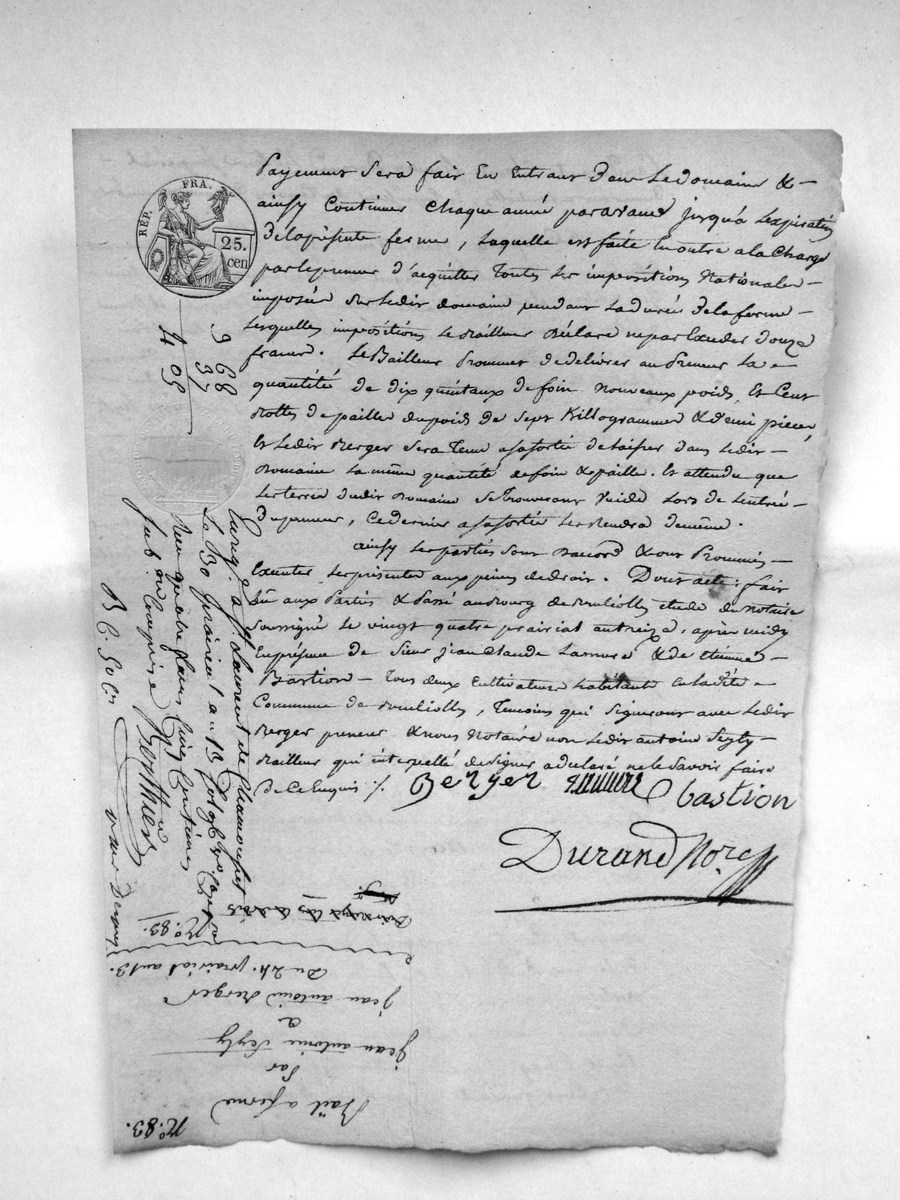 REP. FRA.
25.
cen
3 68
37
4 05
Payement sera fait en entrant dans le domaine &
ainsy continuer chaque année par avance jusqu'à l'expiration
de la présente ferme, laquelle est faite en outre a la charge
par le preneur d'acquitter toutes les impositions Nationales
imposées sur ledit domaine pendant la durée de la ferme
lesquelles impositions le Bailleur déclare ne pas exceder douze
francs. Le Bailleur Promet de delivrer au Preneur la
quantitée de dix quintaux de foin nouveaux poids, et cent
bottes de pailles du poids de sept Killogrammes & demi pieces,
et ledit Berger sera tenu a sa sortie de laisser dans ledit
Domaine la même quantité de foin & paille. et attendu que
les terres dudit Domaine se trouveront vuide lors de l'entrée
du preneur, ce dernier a sa sortie les rendra de même.
ainsy les parties sont d'accord & ont Promis
executer les présentes aux peines de droit. Dont acte: fait
lû aux Parties & Passé au bourg de étude du notaire
soussigné le vingt quatre prairial an treize, après midy
en présence de Sieur Jean Claude Lamure & de etienne
Bastion tous deux cultivateurs habitants en la dite
Commune de , temoins qui signeront avec ledit
Berger preneur & nous Notaire non ledit antoine
Bailleur qui interpellé de signer a declaré ne le savoir faire
de ce Enquis ./.
Berger Lamure Bastion
Durand Nore
Enreg. a St. Laurent de Chamousset
Le 30 prairial an 13 fol.
Reçu quatre francs cinq centimes
sub. on compris
Berthier
R C. 50 c.
No. 83.
Du 24. prairial an 13.
jean antoine Berger
a
jean antoine
Par
Bail a ferme
No. 83.